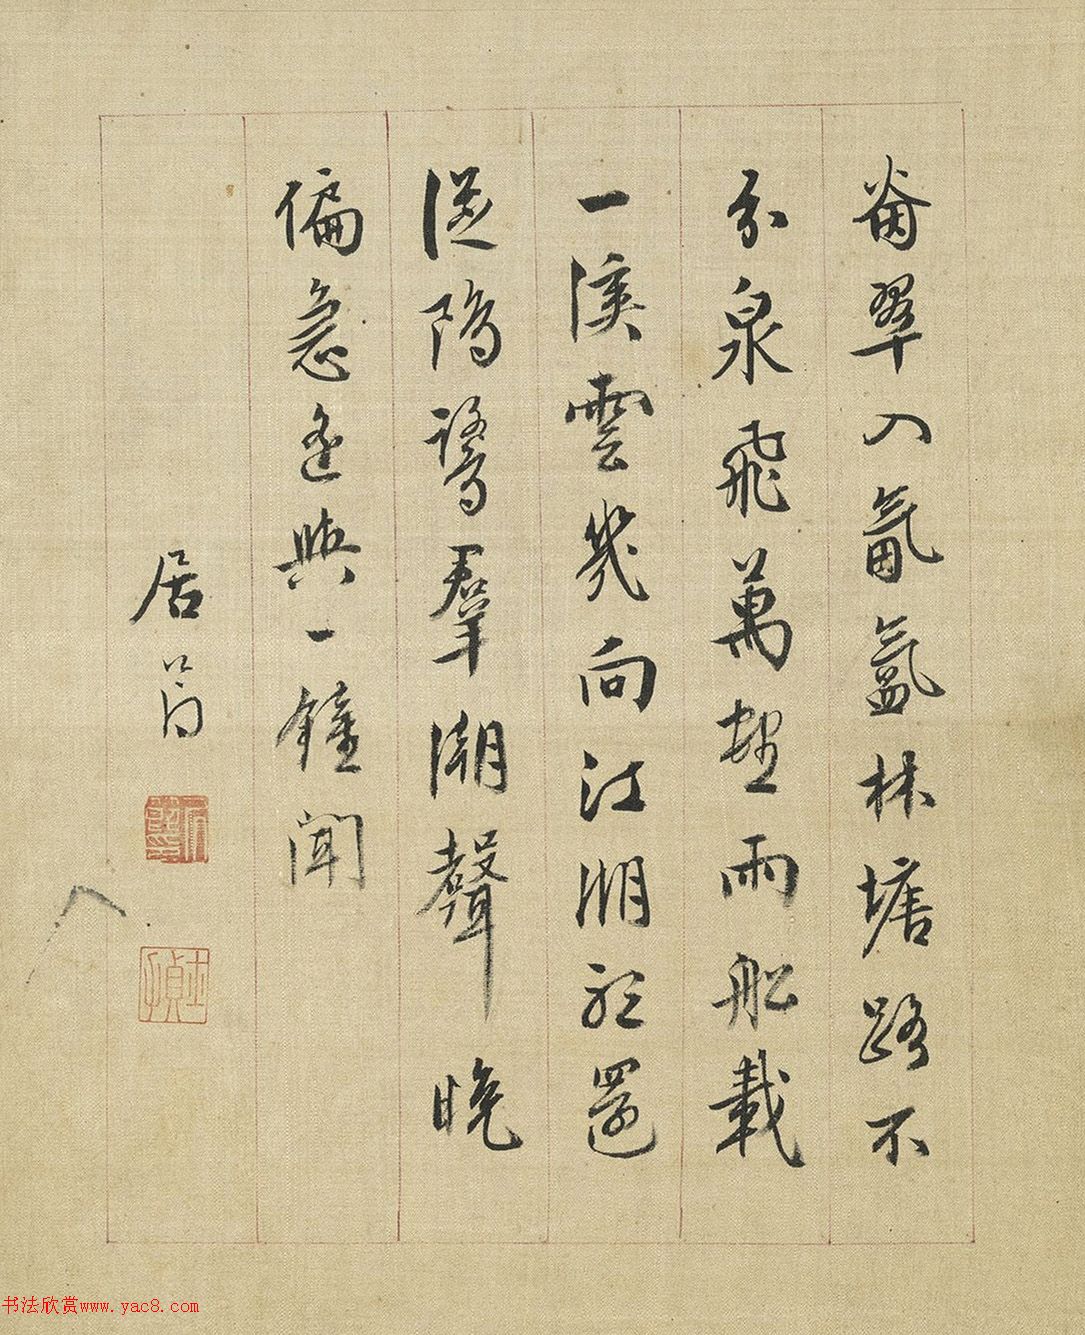 窗翠入氤氳林塘路不
分泉飛萬壑雨船載
一溪雲幾向江湖還
從鷗鷺羣潮聲晚
偏急遙與一鐘聞
居節
书法欣赏www.yac8.com